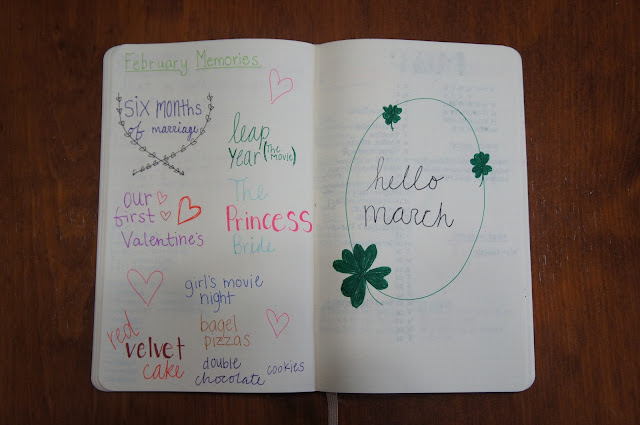 February Memories
six months
of marriage
leap
year (The
Movie)
our
first
Valentine's
The
Princess
Bride
girl's movie
night
red
velvet
cake
bagel
pizzas
double
chocolate cookies
hello
march